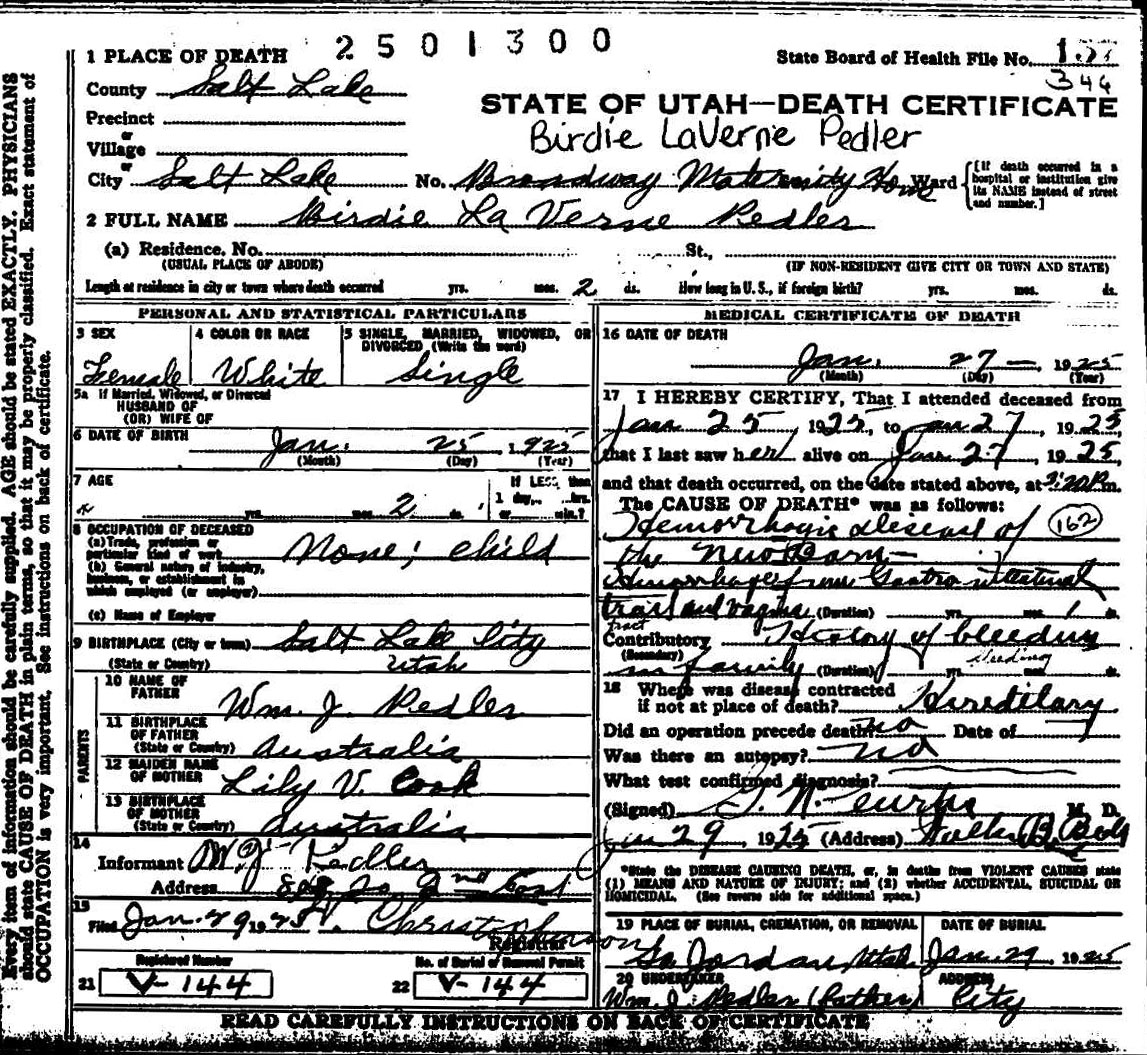 2501300
1 PLACE OF DEATH
State Board of Health File No.
346
County Salt Lake
STATE OF UTAH—DEATH CERTIFICATE
Precinct
Birdie LaVerne Pedler
or
Village
or
City Salt Lake No. Broadway Maternity Home Ward
[If death occurred in a hospital or institution give its NAME instead of street and number.]
2 FULL NAME Birdie La Verne Pedler
(a) Residence. No. St.,
(USUAL PLACE OF ABODE) (IF NON-RESIDENT GIVE CITY OR TOWN AND STATE)
Length of residence in city or town where death occurred yrs. mos. 2 ds. How long in U. S., if foreign birth? yrs. mos. ds.
PERSONAL AND STATISTICAL PARTICULARS
3 SEX 4 COLOR OR RACE 5 SINGLE, MARRIED, WIDOWED, OR DIVORCED (Write the word)
Female White Single
5a If Married, Widowed, or Divorced
HUSBAND OF
(OR) WIFE OF
6 DATE OF BIRTH Jan. 25 1925
(Month) (Day) (Year)
7 AGE
IF LESS than
1 day, hrs.
yrs. mos. 2 ds. or min.?
8 OCCUPATION OF DECEASED
(a) Trade, profession or
particular kind of work None; child
(b) General nature of industry,
business, or establishment in
which employed (or employer)
(c) Name of Employer
9 BIRTHPLACE (City or town) Salt Lake City
(State or Country) Utah
PARENTS
10 NAME OF
FATHER Wm. J. Pedler
11 BIRTHPLACE
OF FATHER
(State or Country) Australia
12 MAIDEN NAME
OF MOTHER Lily V. Cook
13 BIRTHPLACE
OF MOTHER
(State or Country) Australia
14
Informant W. J. Pedler
Address So 2nd East
15
Filed Jan. 29 192
Registrar
Registered Number No. of Burial or Removal Permit
21 V-144 22 V-144
MEDICAL CERTIFICATE OF DEATH
16 DATE OF DEATH
Jan. 27 — , 1925
(Month) (Day) (Year)
17 I HEREBY CERTIFY, That I attended deceased from
Jan 25 , 1925, to Jan 27 , 1925,
that I last saw her alive on Jan 27 , 1925,
and that death occurred, on the date stated above, at 3:20 P.m.
The CAUSE OF DEATH* was as follows:
Hemorrhagic disease of 162
the New Born —
Hemorrhage from Gastro intestinal
tract and vagina (Duration) yrs. mos. 1 ds.
tract
Contributory History of bleeding
(Secondary) bleeding
in family (Duration) yrs. mos. ds.
18 Where was disease contracted
if not at place of death? Hereditary
Did an operation precede death? no Date of
Was there an autopsy? no
What test confirmed diagnosis?
(Signed) M. D.
Jan 29 1925 (Address) Walker B Bldg
*State the DISEASE CAUSING DEATH, or, in deaths from VIOLENT CAUSES state
(1) MEANS AND NATURE OF INJURY; and (2) whether ACCIDENTAL, SUICIDAL OR
HOMICIDAL. (See reverse side for additional space.)
19 PLACE OF BURIAL, CREMATION, OR REMOVAL DATE OF BURIAL
So Jordan, Utah Jan. 29 1925
20 UNDERTAKER ADDRESS
Wm. J. Pedler (Father) City
READ CAREFULLY INSTRUCTIONS ON BACK OF CERTIFICATE
Every item of information should be carefully supplied. AGE should be stated EXACTLY. PHYSICIANS
should state CAUSE OF DEATH in plain terms, so that it may be properly classified. Exact statement of
OCCUPATION is very important. See instructions on back of certificate.